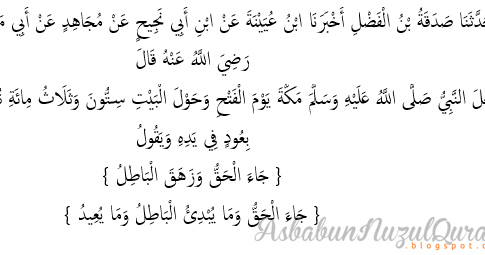 حَدَّثَنَا صَدَقَةُ بْنُ الْفَضْلِ أَخْبَرَنَا ابْنُ عُيَيْنَةَ عَنْ ابْنِ أَبِي نَجِيحٍ عَنْ مُجَاهِدٍ عَنْ أَبِي
رَضِيَ اللَّهُ عَنْهُ قَالَ
النَّبِيُّ صَلَّى اللَّهُ عَلَيْهِ وَسَلَّمَ مَكَّةَ يَوْمَ الْفَتْحِ وَحَوْلَ الْبَيْتِ سِتُّونَ وَثَلَاثُ مِائَةِ
بِعُودٍ فِي يَدِهِ وَيَقُولُ
{ جَاءَ الْحَقُّ وَزَهَقَ الْبَاطِلُ }
{ جَاءَ الْحَقُّ وَمَا يُبْدِئُ الْبَاطِلُ وَمَا يُعِيدُ }
AsbabunNuzulQura
blogspot.